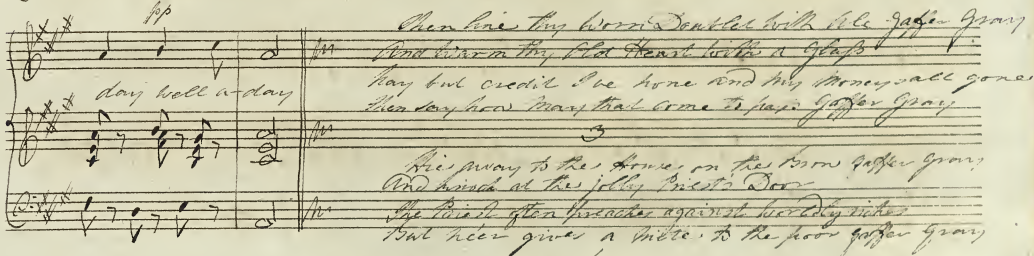 pp
day well a-day
Then line thy worn Doublet with Ale Gaffer Gray
And warm thy Old Heart with a Glaſs
Nay but credit I've none and my Moneys all gone
Then say how may that come to pass Gaffer Gray
3
Hie away to the House on the Brow Gaffer Gray
And knock at the jolly Priests Door
The Priest often preaches against worldly riches
But ne'er gives a mite to the poor Gaffer Gray